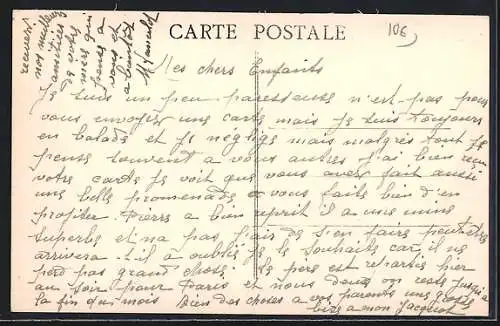 CARTE POSTALE
10€
Mes chers Enfants
Je suis un peu paresseuse n'est-pas pour
vous envoyer une carte mais je suis toujours
en balade et je néglige mais malgrès tout je
pense souvent a vous autres j'ai bien reçu
votre carte je vois que vous avez fait aussi
une belle promenade vous faite bien d'en
profiter Pierre a bien il a une mine
superbe et n'a pas l'air de s'en faire peut-être
arrivera t-il à oublié je le souhaite car il ne
perd pas grand chose le pere est repartis hier
au soir pour Paris et nous deux on reste jusqu'a
la fin du mois Bien des choses a vos parents une grosse
bise a mon Jacquot
recevez
nos meilleurs
amitiées
de votre
mère qui
pense a
vous et
a bientôt